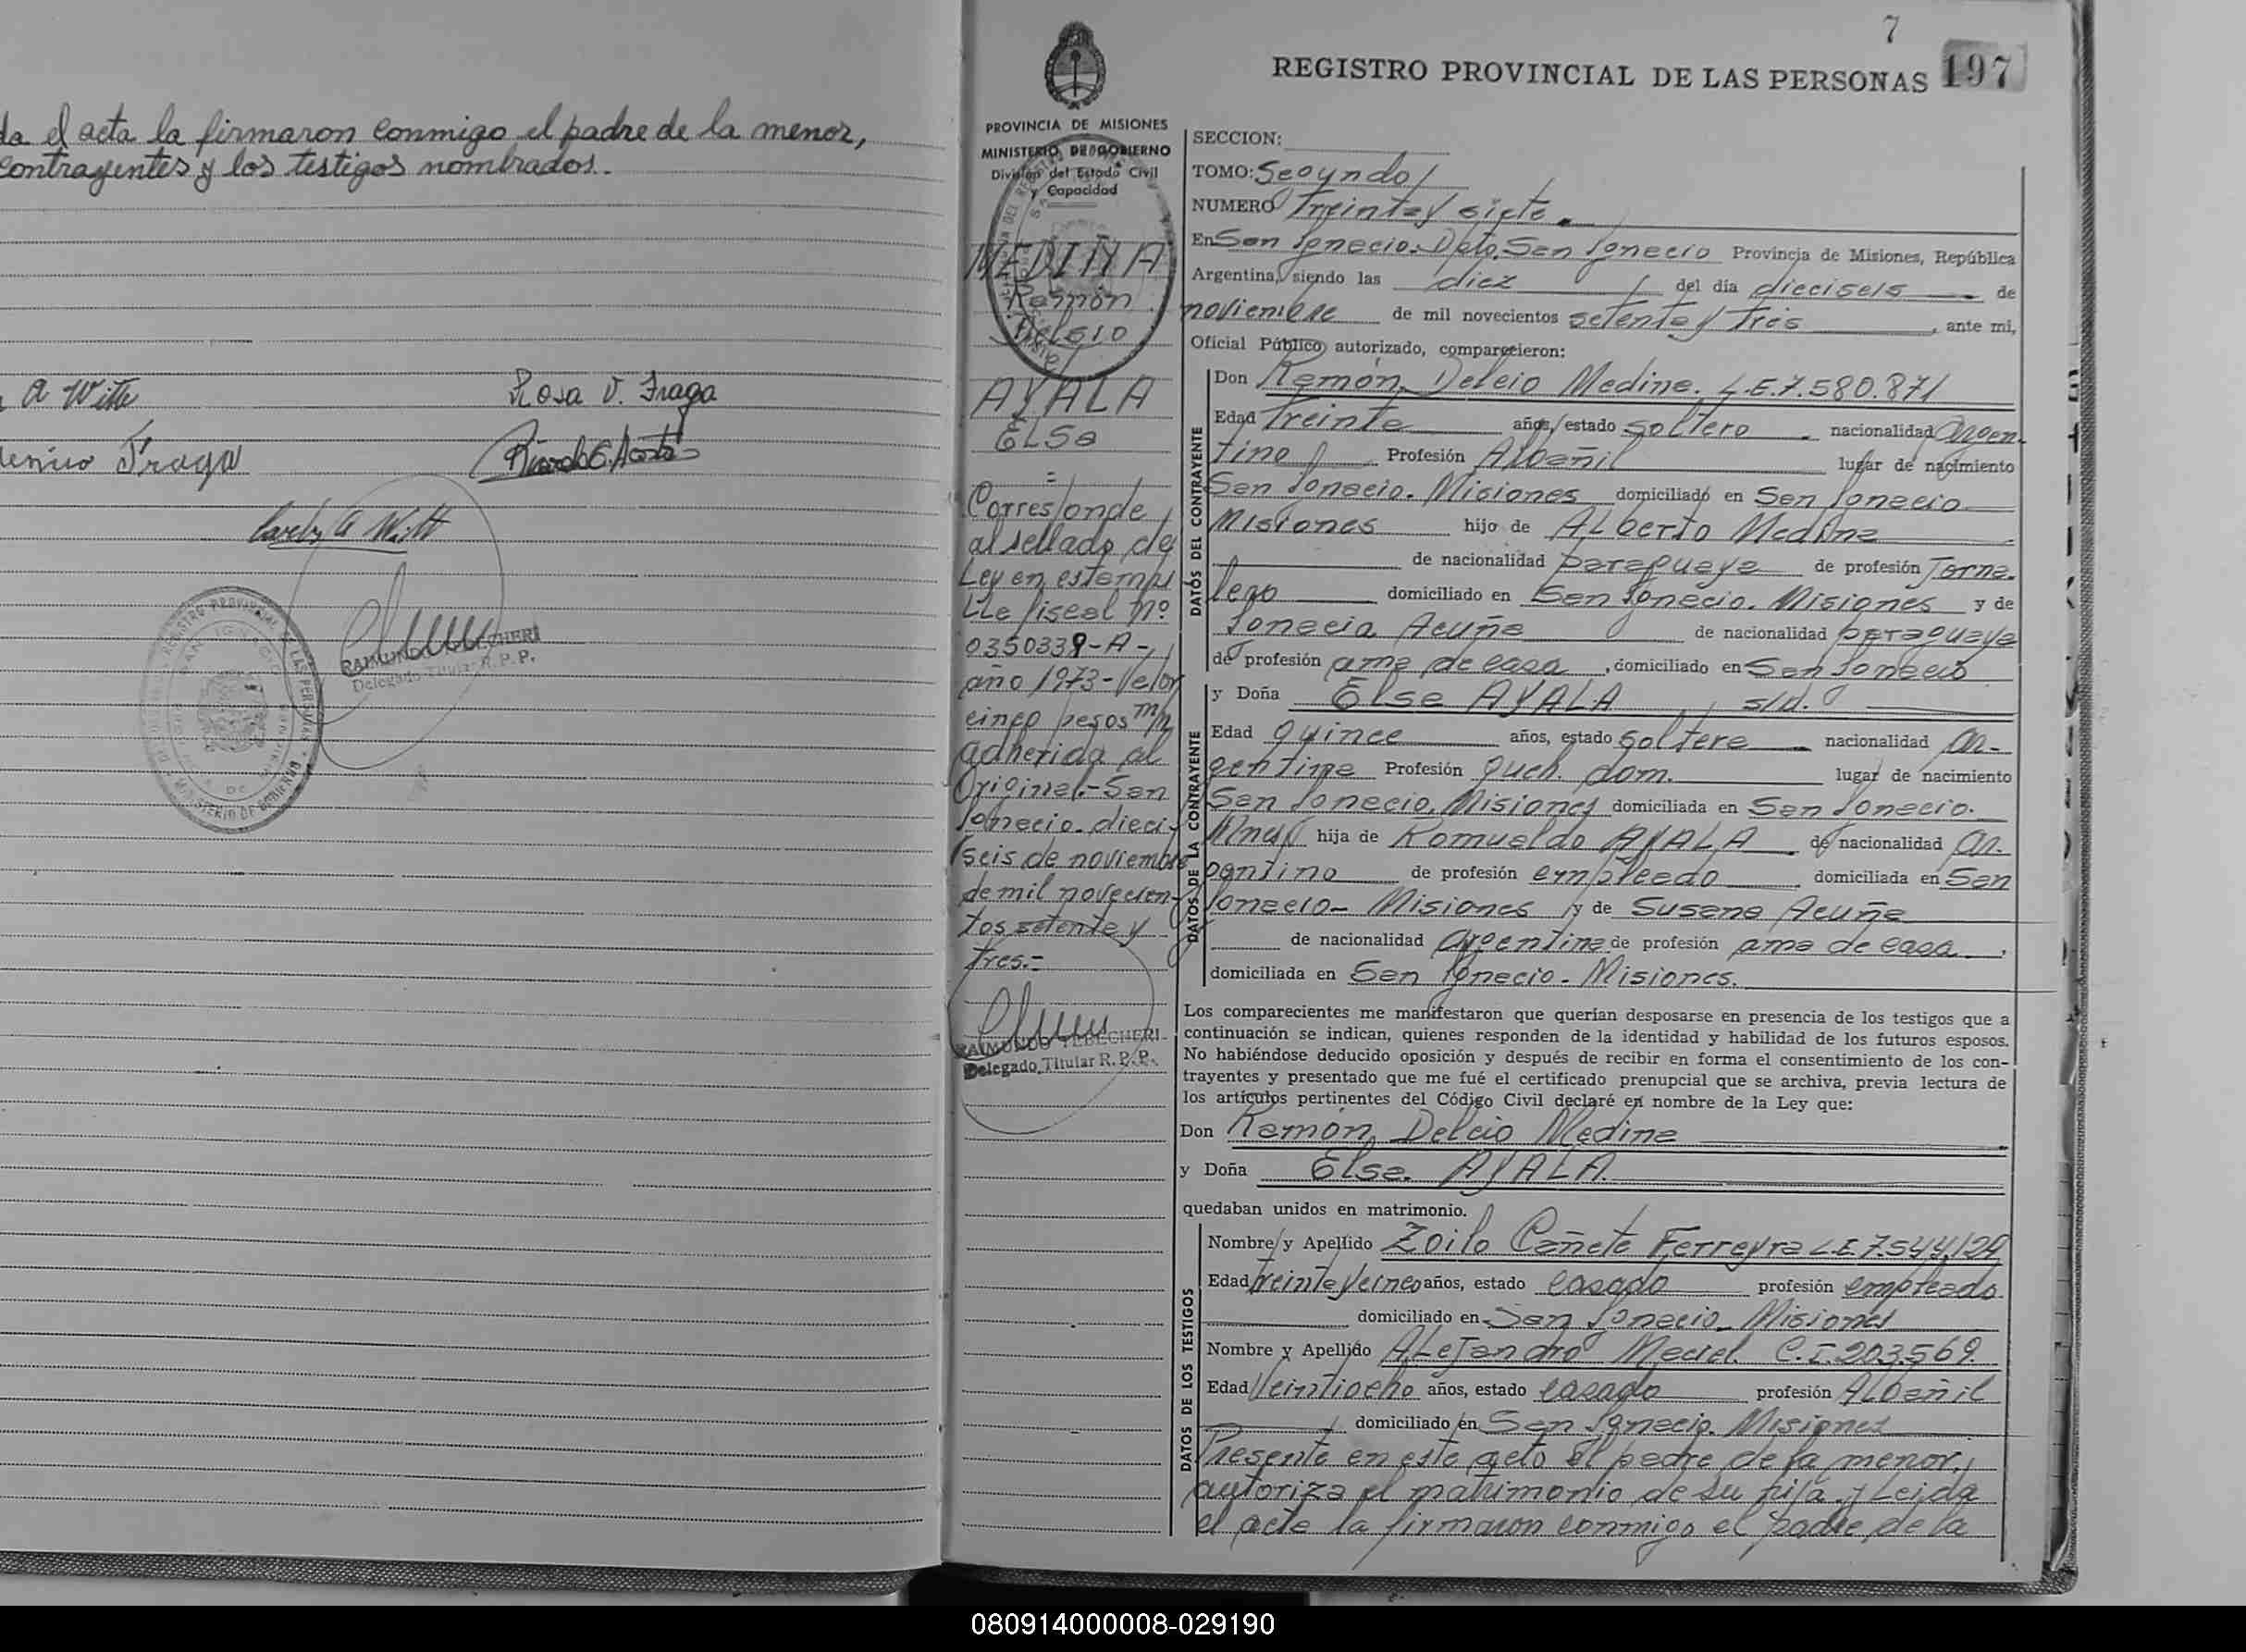 da el acta la firmaron conmigo el padre de la menor,
contrayentes y los testigos nombrados.
A Witte
Rosa V. Fraga
Fraga
Ricardo E. Acosta
Carlos A Witt
REGISTRO PROVINCIAL DE LAS PERSONAS
SAN IGNACIO
MINISTERIO DE GOBIERNO
RAIMUNDO TEBECHERI
Delegado Titular R. P. P.
7
REGISTRO PROVINCIAL DE LAS PERSONAS 197
PROVINCIA DE MISIONES
MINISTERIO DE GOBIERNO
División del Estado Civil
y Capacidad
MEDINA
Ramón
Delcio
AYALA
ELSa
=
Corresponde
al sellado de
Ley en estampi
lla fiscal Nº
0350339-A-
año 1973-Valor
cinco pesos m/n
adherida al
Original.-San
Ignacio. dieci-
seis de noviembre
de mil novecien-
tos setenta y
tres.-
RAIMUNDO TEBECHERI
Delegado Titular R. P. P.
SECCION:
TOMO: Segundo
NUMERO Treinta y siete.
En San Ignacio. Dpto. San Ignacio Provincia de Misiones, República
Argentina, siendo las diez del día dieciseis de
noviembre de mil novecientos setenta y tres, ante mi,
Oficial Público autorizado, comparecieron:
DATOS DEL CONTRAYENTE
Don Ramón Delcio Medina. L.E.7.580.871
Edad Treinta años, estado soltero nacionalidad Argen-
tino Profesión Albañil lugar de nacimiento
San Ignacio. Misiones domiciliado en San Ignacio
Misiones hijo de Alberto Medina
de nacionalidad paraguaya de profesión Jorna-
lero domiciliado en San Ignacio. Misiones y de
Ignacia Acuña de nacionalidad paraguaya
de profesión ama de casa, domiciliado en San Ignacio
DATOS DE LA CONTRAYENTE
y Doña Elsa AYALA s/d.
Edad quince años, estado soltera nacionalidad Ar-
gentina Profesión queh. dom. lugar de nacimiento
San Ignacio. Misiones domiciliada en San Ignacio.
Mnes hija de Romualdo AYALA de nacionalidad Ar-
gentino de profesión empleado domiciliada en San
Ignacio- Misiones y de Susana Acuña
de nacionalidad Argentina de profesión ama de casa.
domiciliada en San Ignacio - Misiones.
Los comparecientes me manifestaron que querían desposarse en presencia de los testigos que a
continuación se indican, quienes responden de la identidad y habilidad de los futuros esposos.
No habiéndose deducido oposición y después de recibir en forma el consentimiento de los con-
trayentes y presentado que me fué el certificado prenupcial que se archiva, previa lectura de
los artículos pertinentes del Código Civil declaré en nombre de la Ley que:
Don Ramón Delcio Medina
y Doña Elsa. AYALA.
quedaban unidos en matrimonio.
DATOS DE LOS TESTIGOS
Nombre y Apellido Zoilo Cañete Ferreyra L.E. 7.544.129
Edad treinta y cinco años, estado casado profesión empleado
domiciliado en San Ignacio. Misiones
Nombre y Apellido Alejandro Maciel. C.I. 203.569.
Edad Veintiocho años, estado casado profesión Albañil
domiciliado en San Ignacio. Misiones
Presente en este acto el padre de la menor,
autoriza el matrimonio de su hija. y Leida
el acta la firmaron conmigo el padre de la
080914000008-029190